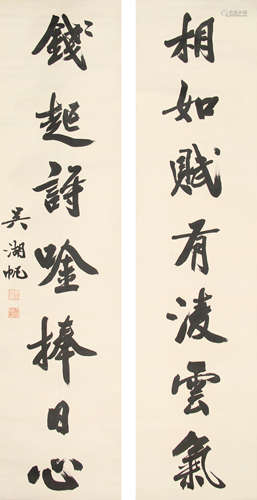 相如賦有凌雲氣
錢起詩唫捧日心
吳湖帆